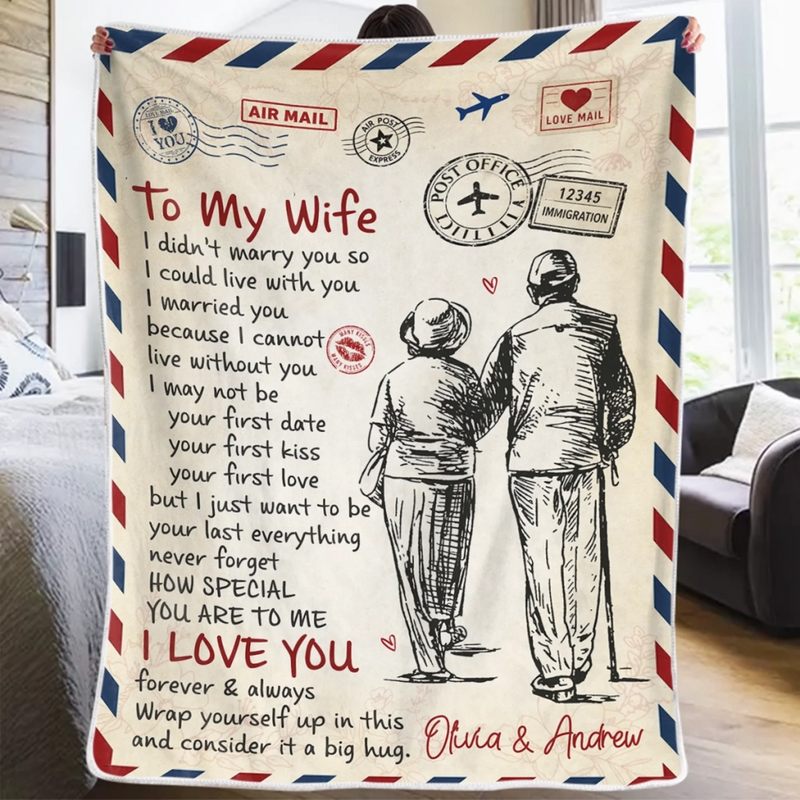 LOVE MAIL
I
YOU
AIR MAIL
AIR POST
EXPRESS
LOVE MAIL
POST OFFICE
12345
IMMIGRATION
To My Wife
I didn't marry you so
I could live with you
I married you
because I cannot
MANY KISSES
MANY KISSES
live without you
I may not be
your first date
your first kiss
your first love
but I just want to be
your last everything
never forget
HOW SPECIAL
YOU ARE TO ME
I LOVE YOU
forever & always
Wrap yourself up in this
and consider it a big hug.
Olivia & Andrew